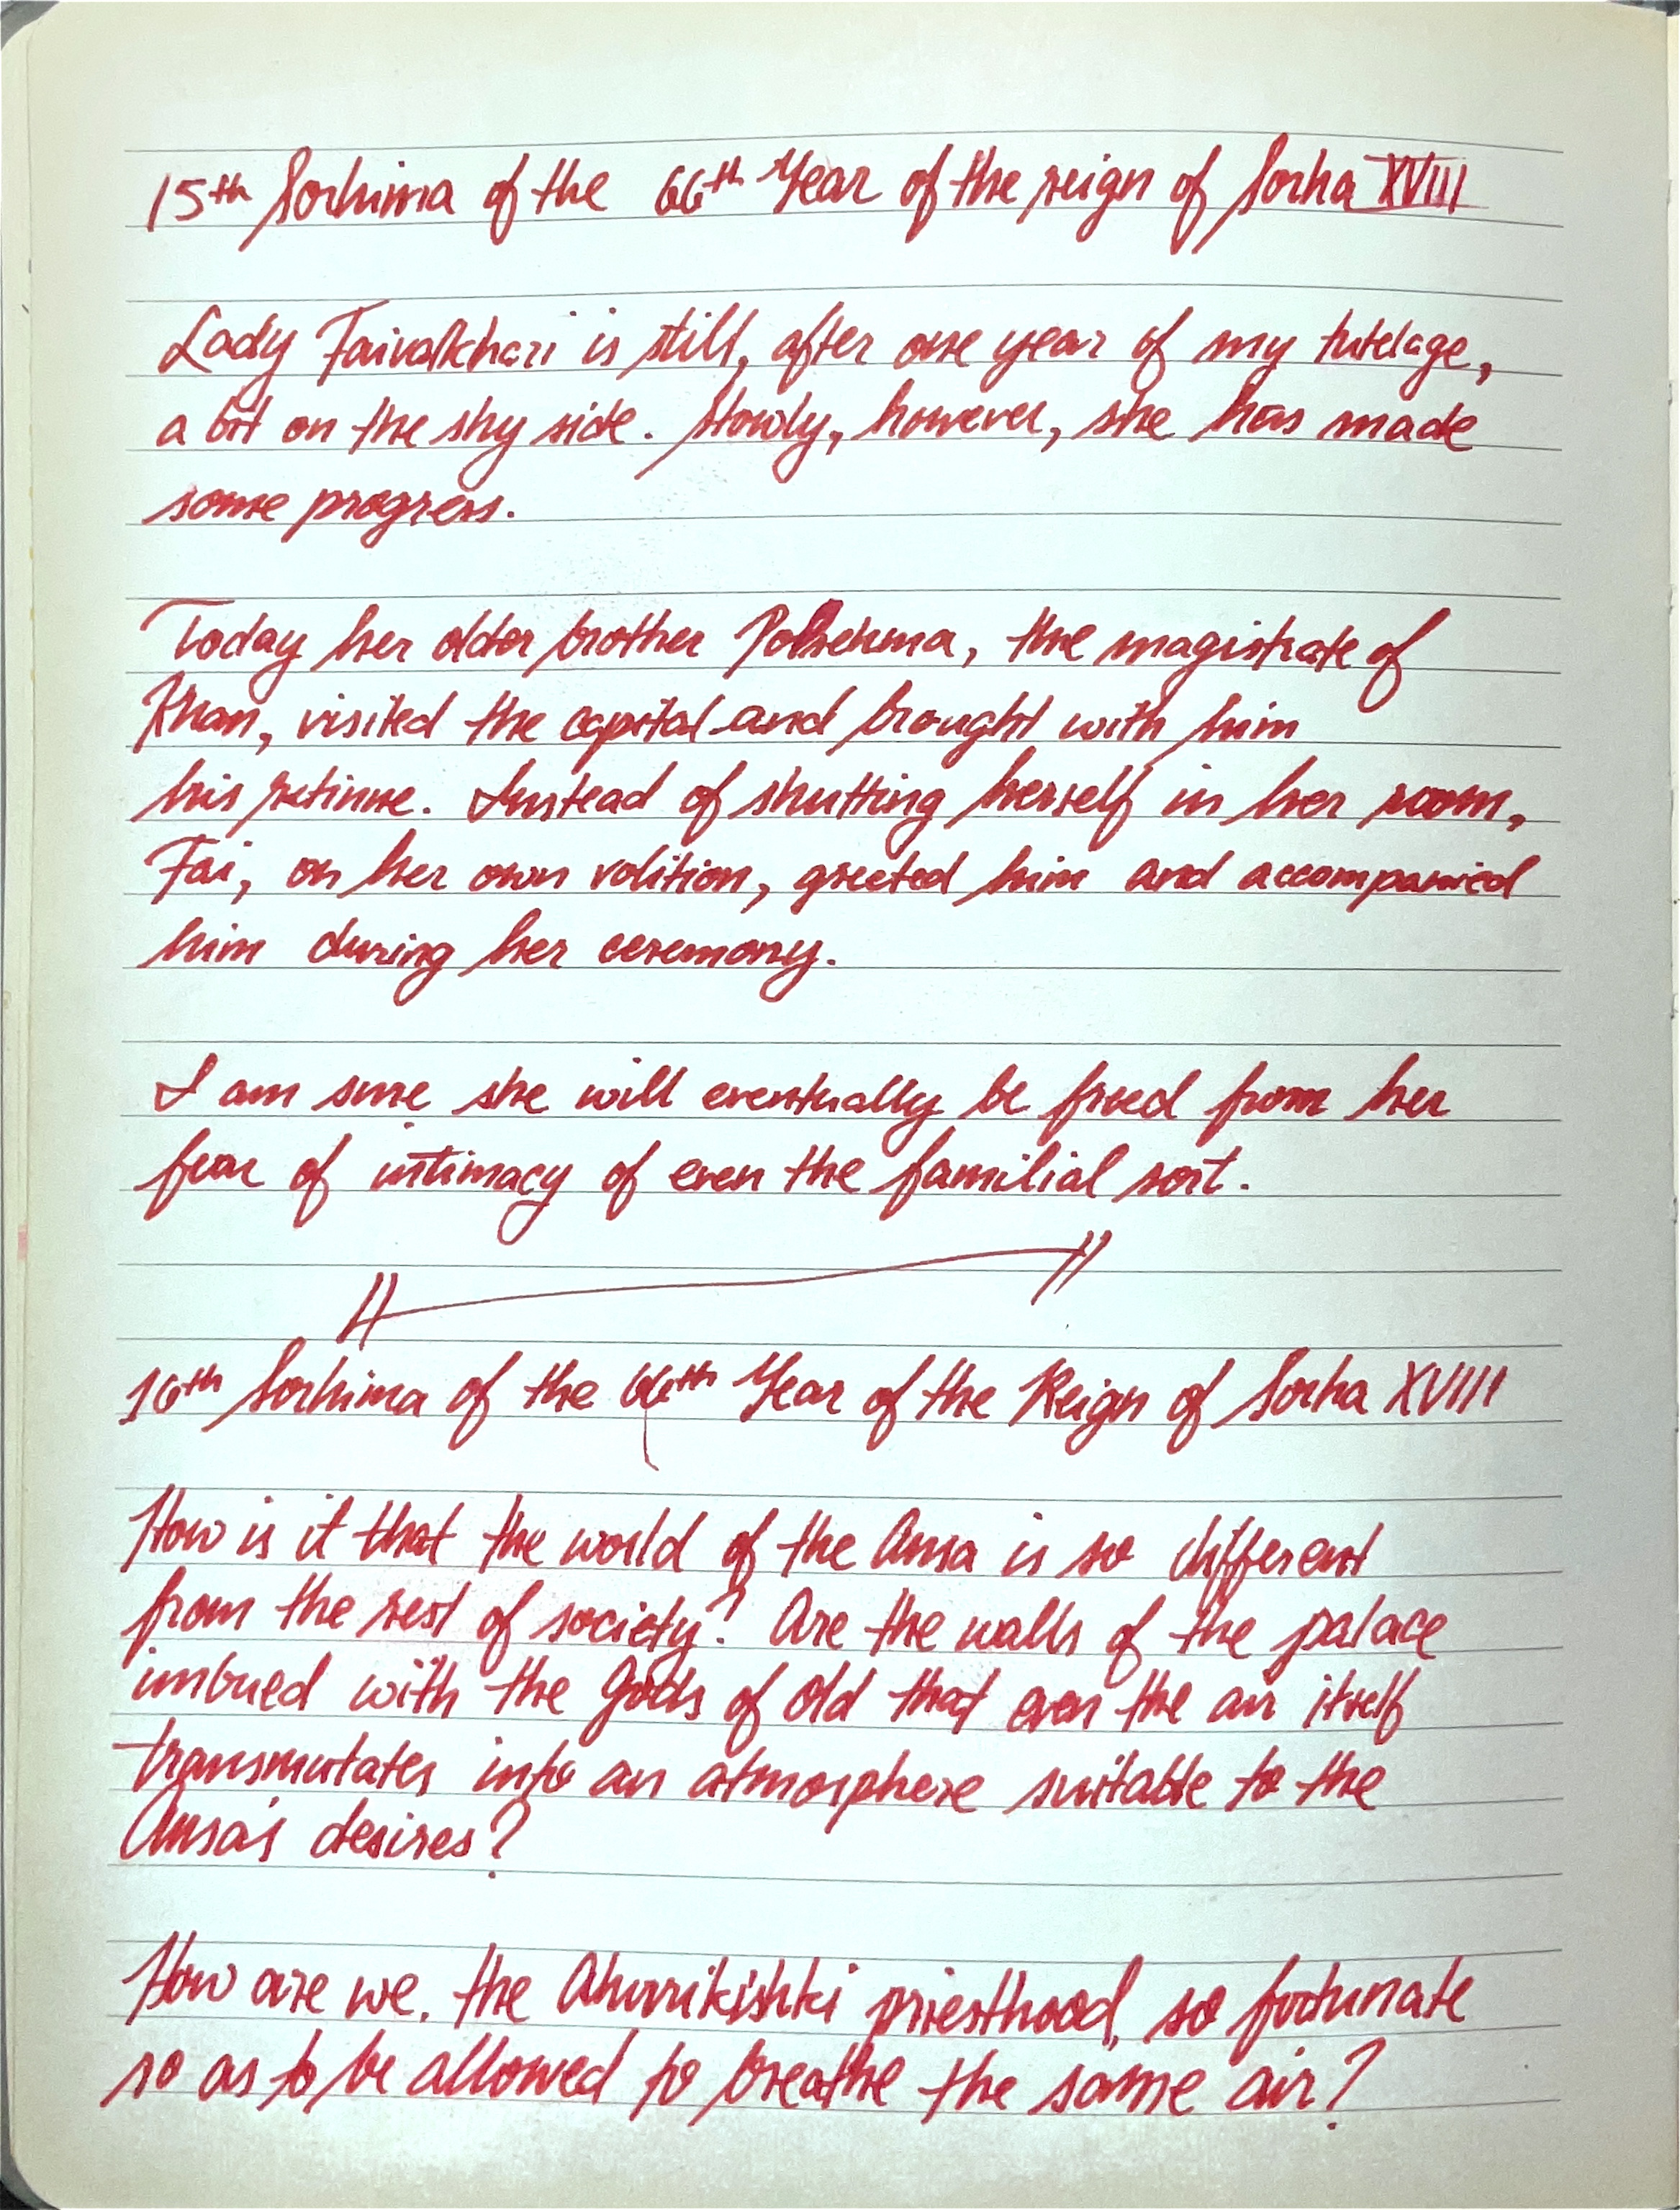 15th Sorhima of the 66th Year of the reign of Sorha XVIII
Lady Faivalkhari is still, after one year of my tutelage,
a bit on the shy side. Slowly, however, she has made
some progress.
Today her older brother the magistrate of
Khan, visited the capital and brought with him
his retinue. Instead of shutting herself in her room,
Fai, on her own volition, greeted him and accompanied
him during her ceremony.
I am sure she will eventually be freed from her
fear of intimacy of even the familial sort.
16th Sorhima of the 66th Year of the Reign of Sorha XVIII
How is it that the world of the Ansa is so different
from the rest of society? Are the walls of the palace
imbued with the Gods of Old that even the air itself
transmutates into an atmosphere suitable to the
Ansa's desires?
How are we, the Ahurrikishki priesthood, so fortunate
so as to be allowed to breathe the same air?